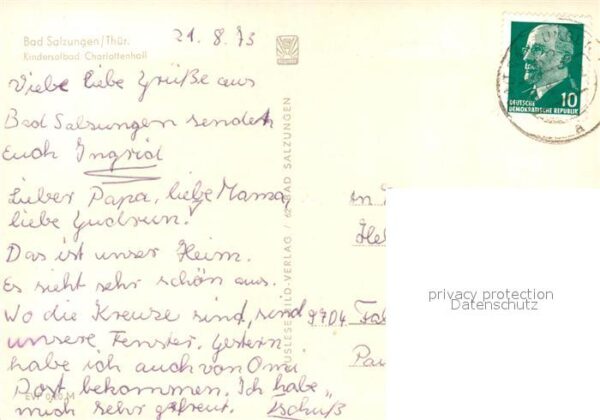 Bad Salzungen/Thür.
Kindersolbad Charlottenhall
21.8.73
Viele liebe Grüße aus
Bad Salzungen sendet
Euch Ingrid
Lieber Papa, liebe Mama,
liebe Gudrun!
Das ist unser Heim.
Es sieht sehr schön aus.
Wo die Kreuze sind, sind
unsere Fenster. Gestern
habe ich auch von Omi
Post bekommen. Ich habe
mich sehr gefreut. Tschüß
AUSLESE-BILD-VERLAG / 62 BAD SALZUNGEN
DEUTSCHE
DEMOKRATISCHE REPUBLIK
10
a
9704 Fal
privacy protection
Datenschutz